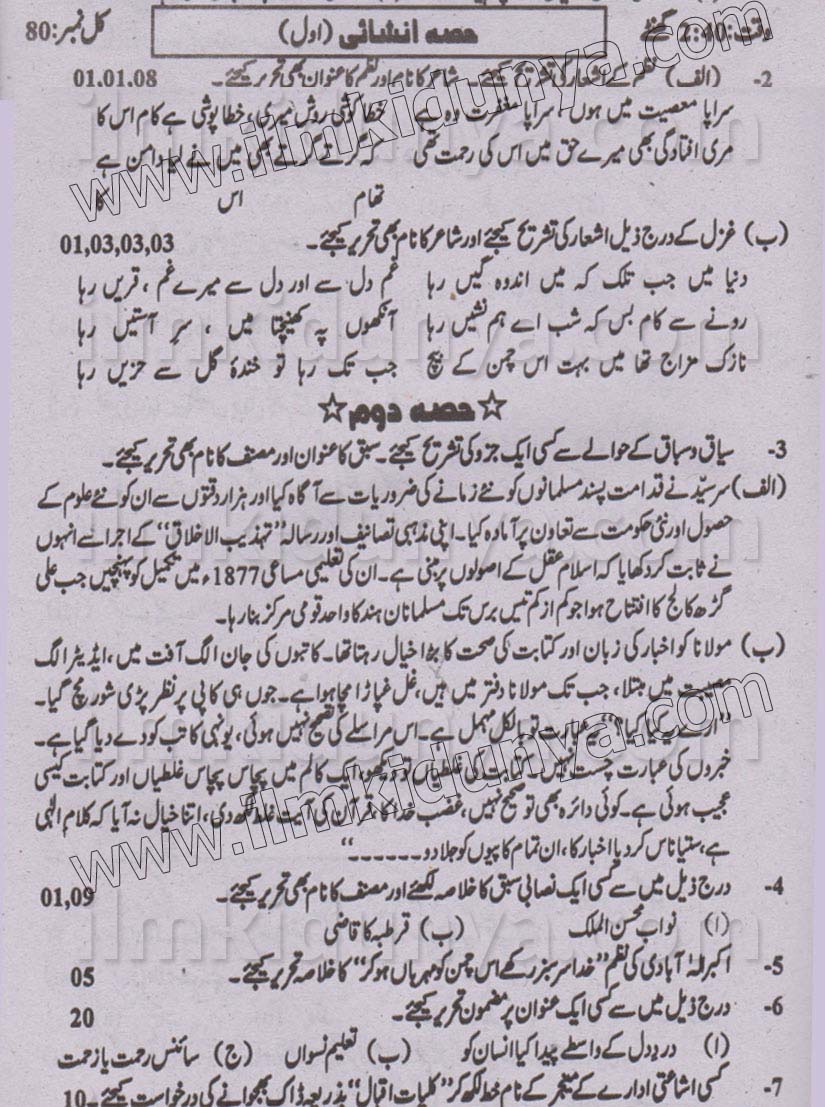 وقت:2:40 گھنٹے حصہ انشائی (اول) کل نمبر:80
2- (الف) نظم کے اشعار کی تشریح کیجئے۔ شاعر کا نام اور نظم کا عنوان بھی تحریر کیجئے۔ 01.01.08
سراپا معصیت میں ہوں، سراپا مغفرت وہ ہے خطا کوشی روش میری، خطا پوشی ہے کام اس کا
مری افتادگی بھی میرے حق میں اس کی رحمت تھی کہ گرتے گرتے بھی میں نے لیا دامن ہے
تھام اس کا
(ب) غزل کے درج ذیل اشعار کی تشریح کیجئے اور شاعر کا نام بھی تحریر کیجئے۔ 01,03,03,03
دنیا میں جب تلک کہ میں اندوہ گیں رہا غم دل سے اور دل سے میرے غم، قریں رہا
رونے سے کام بس کہ شب اے ہم نشیں رہا آنکھوں پہ کھینچتا میں، سر آستیں رہا
نازک مزاج تھا میں بہت اس چمن کے بیچ جب تک رہا تو خندۂ گل سے حزیں رہا
☆حصہ دوم☆
3- سیاق و سباق کے حوالے سے کسی ایک جزو کی تشریح کیجئے۔ سبق کا عنوان اور مصنف کا نام بھی تحریر کیجئے۔
(الف) سرسیّد نے قدامت پسند مسلمانوں کو نئے زمانے کی ضروریات سے آگاہ کیا اور ہزار دقتوں سے ان کو نئے علوم کے
حصول اور نئی حکومت سے تعاون پر آمادہ کیا۔ اپنی مذہبی تصانیف اور رسالہ "تہذیب الاخلاق" کے اجرا سے انہوں
نے ثابت کر دکھایا کہ اسلام عقل کے اصولوں پر مبنی ہے۔ ان کی تعلیمی مساعی 1877ء میں تکمیل کو پہنچیں جب علی
گڑھ کالج کا افتتاح ہوا جو کم از کم تیس برس تک مسلمانان ہند کا واحد قومی مرکز بنا رہا۔
(ب) مولانا کو اخبار کی زبان اور کتابت کی صحت کا بڑا خیال رہتا تھا۔ کاتبوں کی جان الگ آفت میں، ایڈیٹر الگ
مصیبت میں مبتلا، جب تک مولانا دفتر میں ہیں، غل غپاڑا مچا ہوا ہے۔ جوں ہی کاپی پر نظر پڑی شور مچ گیا۔
"ارے یہ کیا کیا؟" یہ عبارت تو بالکل مہمل ہے۔ اس مراسلے کی تصحیح نہیں ہوئی، یونہی کاتب کو دے دیا گیا ہے۔
خبروں کی عبارت چست نہیں۔ کتابت کی غلطیاں تو دیکھو، ایک کالم میں پچاس پچاس غلطیاں اور کتابت کیسی
عجیب ہوئی ہے۔ کوئی دائرہ بھی تو صحیح نہیں، غضب خدا کا، قرآن کی آیت غلط لکھ دی، اتنا خیال نہ آیا کہ کلام الٰہی
ہے، ستیا ناس کر دیا اخبار کا، ان تمام کاپیوں کو جلا دو۔۔۔۔۔۔"
4- درج ذیل میں سے کسی ایک نصابی سبق کا خلاصہ لکھئے اور مصنف کا نام بھی تحریر کیجئے۔ 01,09
(ا) نواب محسن الملک (ب) قرطبہ کا قاضی
5- اکبر الہٰ آبادی کی نظم "خدا سرسبز رکھے اس چمن کو مہرباں ہو کر" کا خلاصہ تحریر کیجئے۔ 05
6- درج ذیل میں سے کسی ایک عنوان پر مضمون تحریر کیجئے۔ 20
(ا) درد دل کے واسطے پیدا کیا انسان کو (ب) تعلیم نسواں (ج) سائنس رحمت یا زحمت
7- کسی اشاعتی ادارے کے منیجر کے نام خط لکھ کر "کلیات اقبال" بذریعہ ڈاک بھجوانے کی درخواست کیجئے۔ 10
www.ilmkidunya.com
www.ilmkidunya.com
ilmkidunya.com
ilmkidunya.com
ilmkidunya.com
ilmkidunya.com
ilmkidunya.com